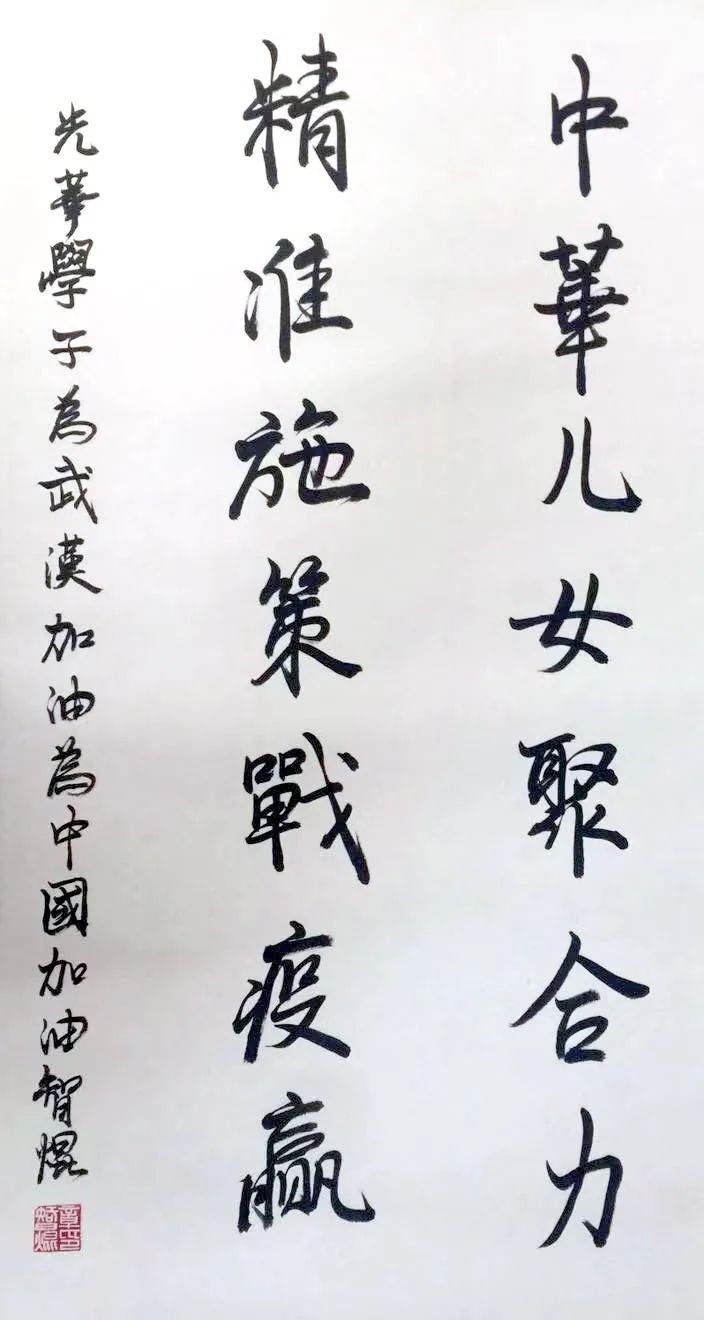 中華儿女聚合力
精准施策戰疫贏
光華學子為武漢加油為中國加油智焜